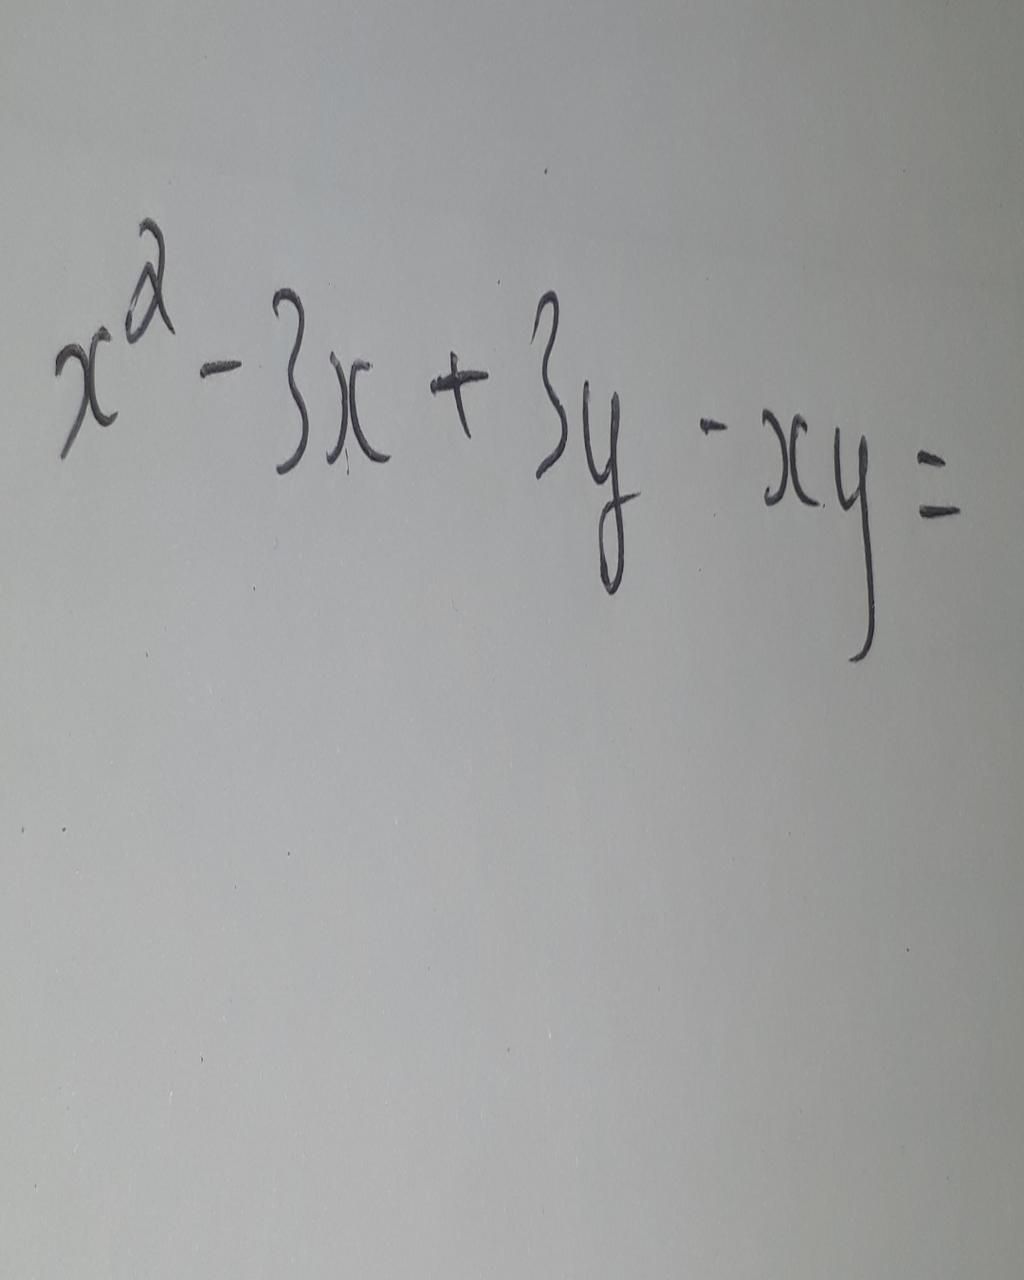 x² - 3x + 3y - xy =